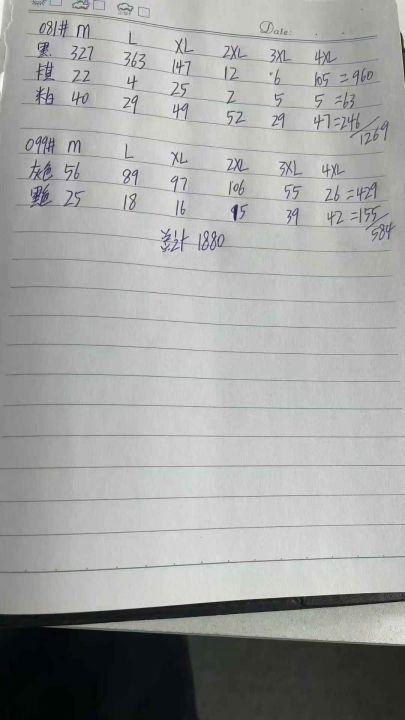 Date:
081# M L XL 2XL 3XL 4XL
黑 327 363 147 12 6 105 =960
棋 22 4 25 2 5 5 =63
粘 40 29 49 52 29 47 =246
1269
099# M L XL 2XL 3XL 4XL
灰色 56 89 97 106 55 26 =429
黑色 25 18 16 15 39 42 =155
584
总计 1880